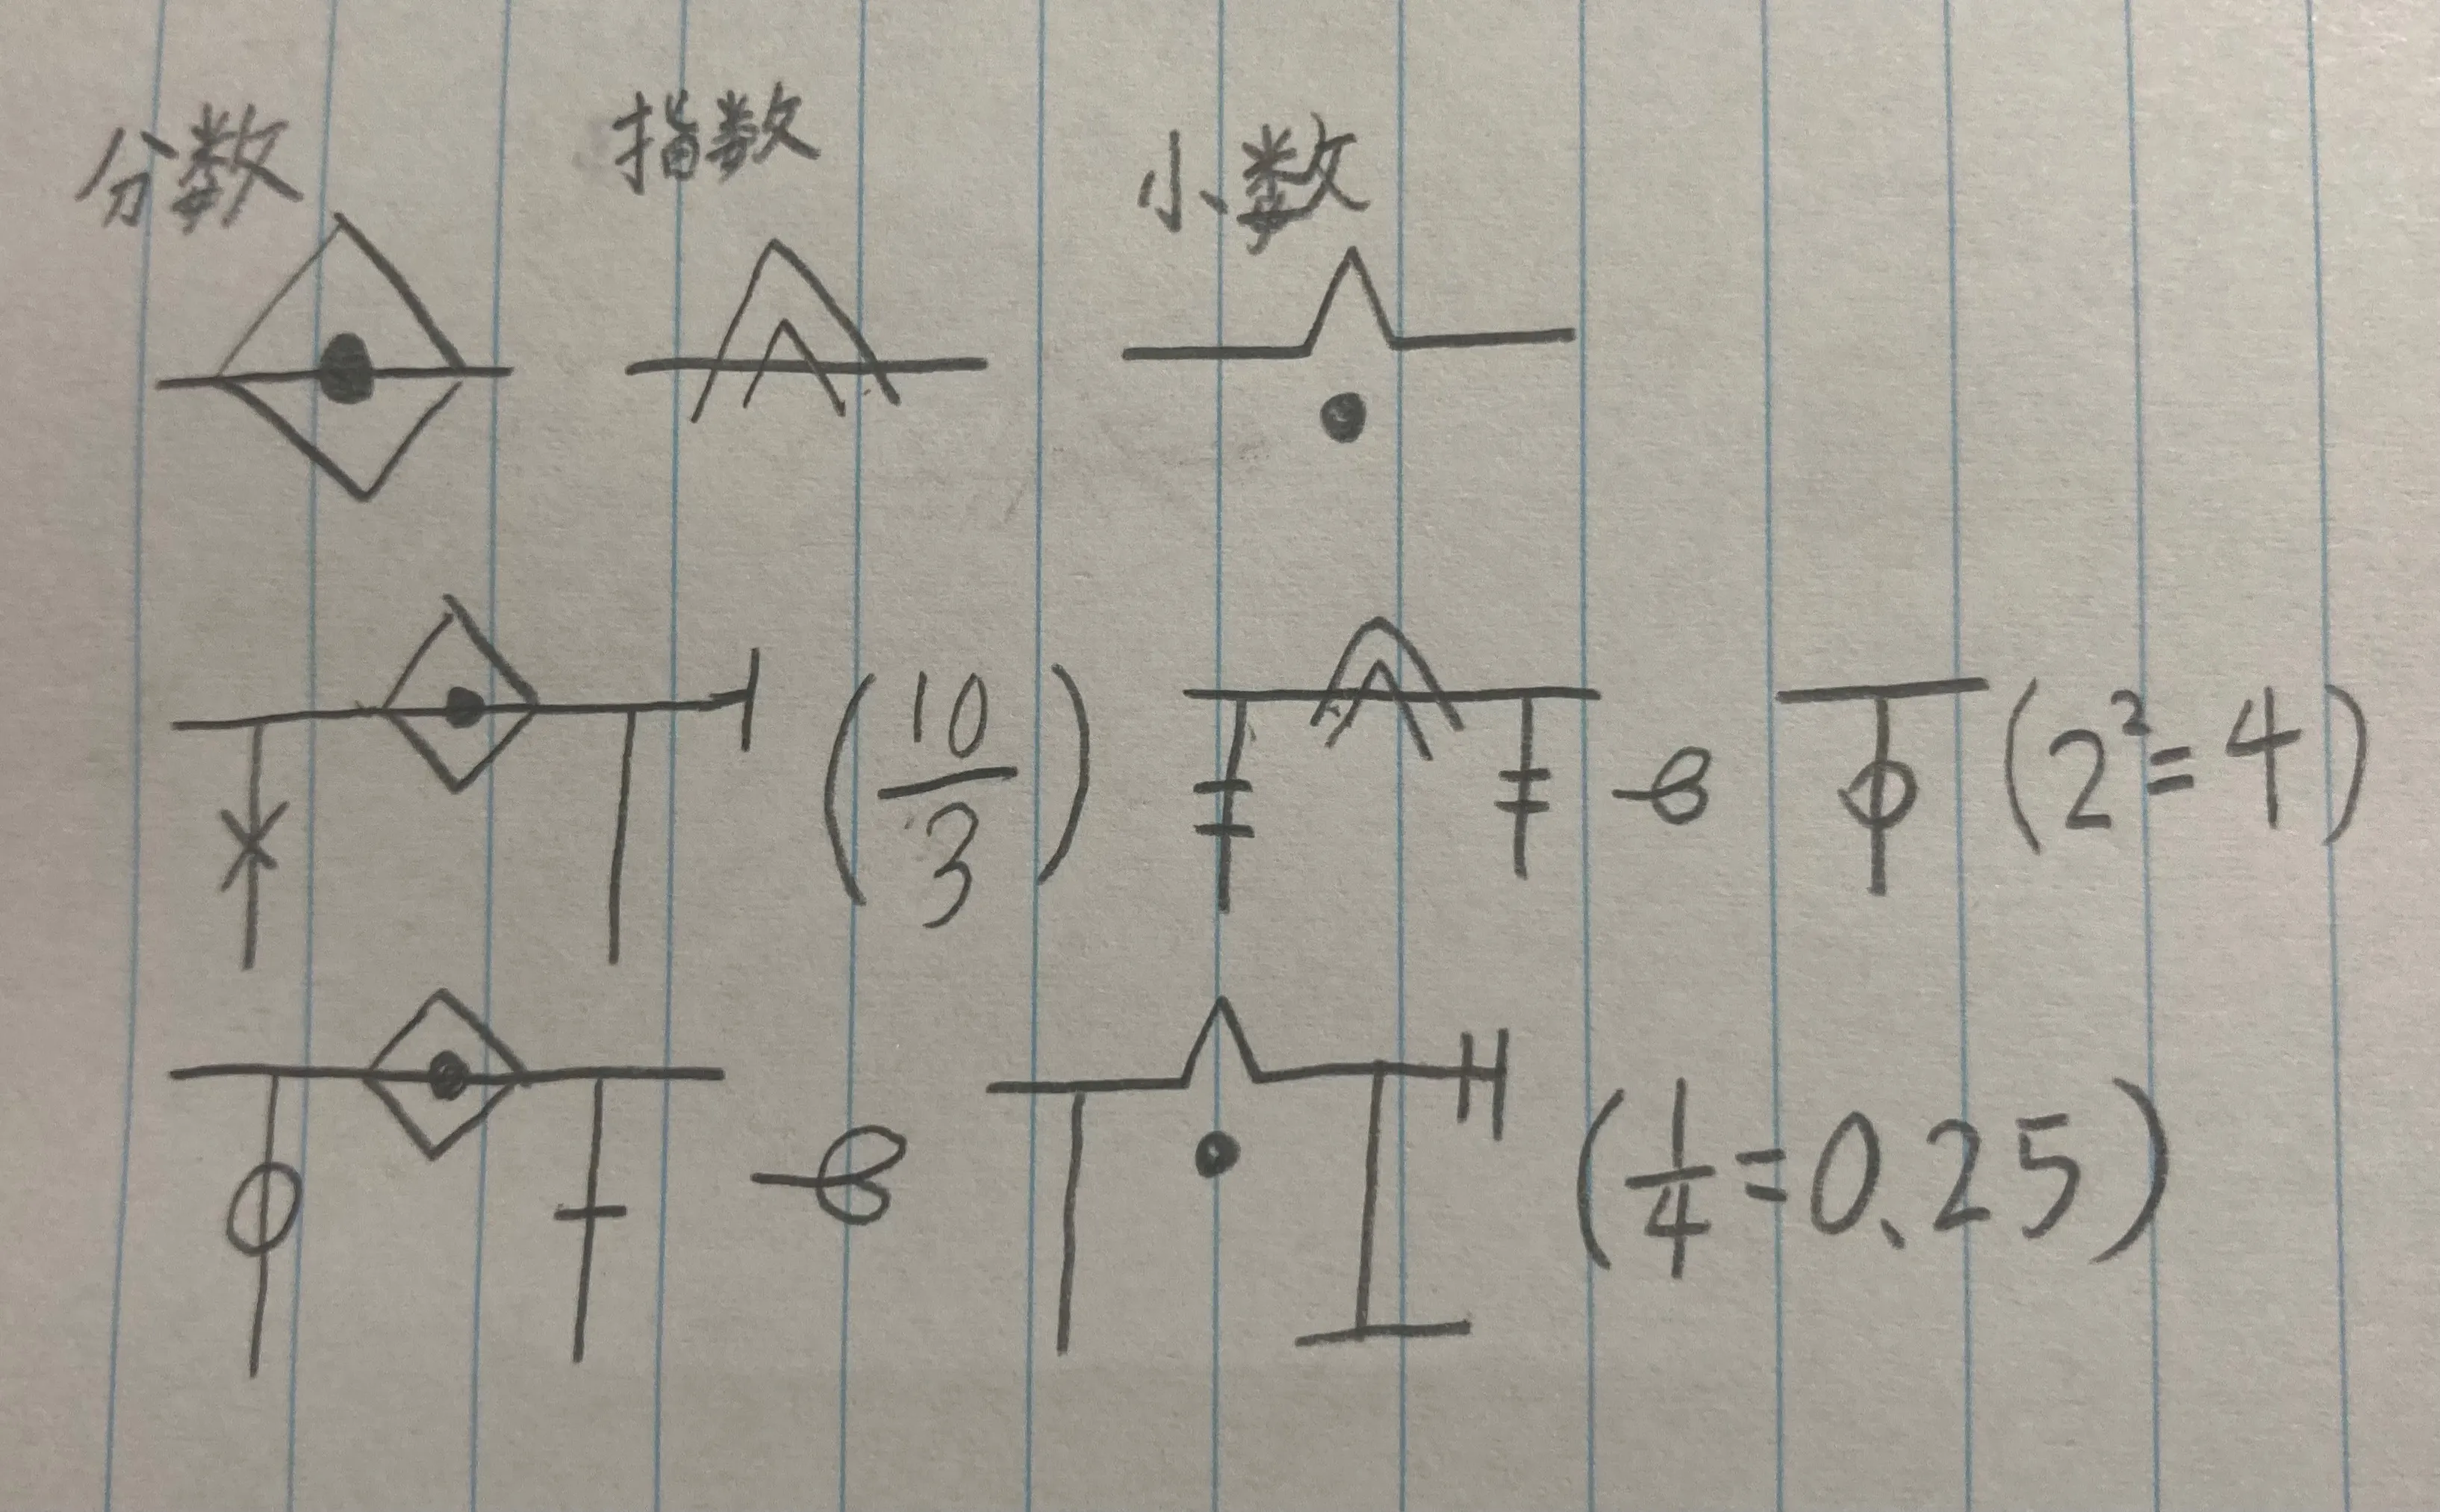 分数 指数 小数
(10/3) (2²=4)
(1/4=0.25)